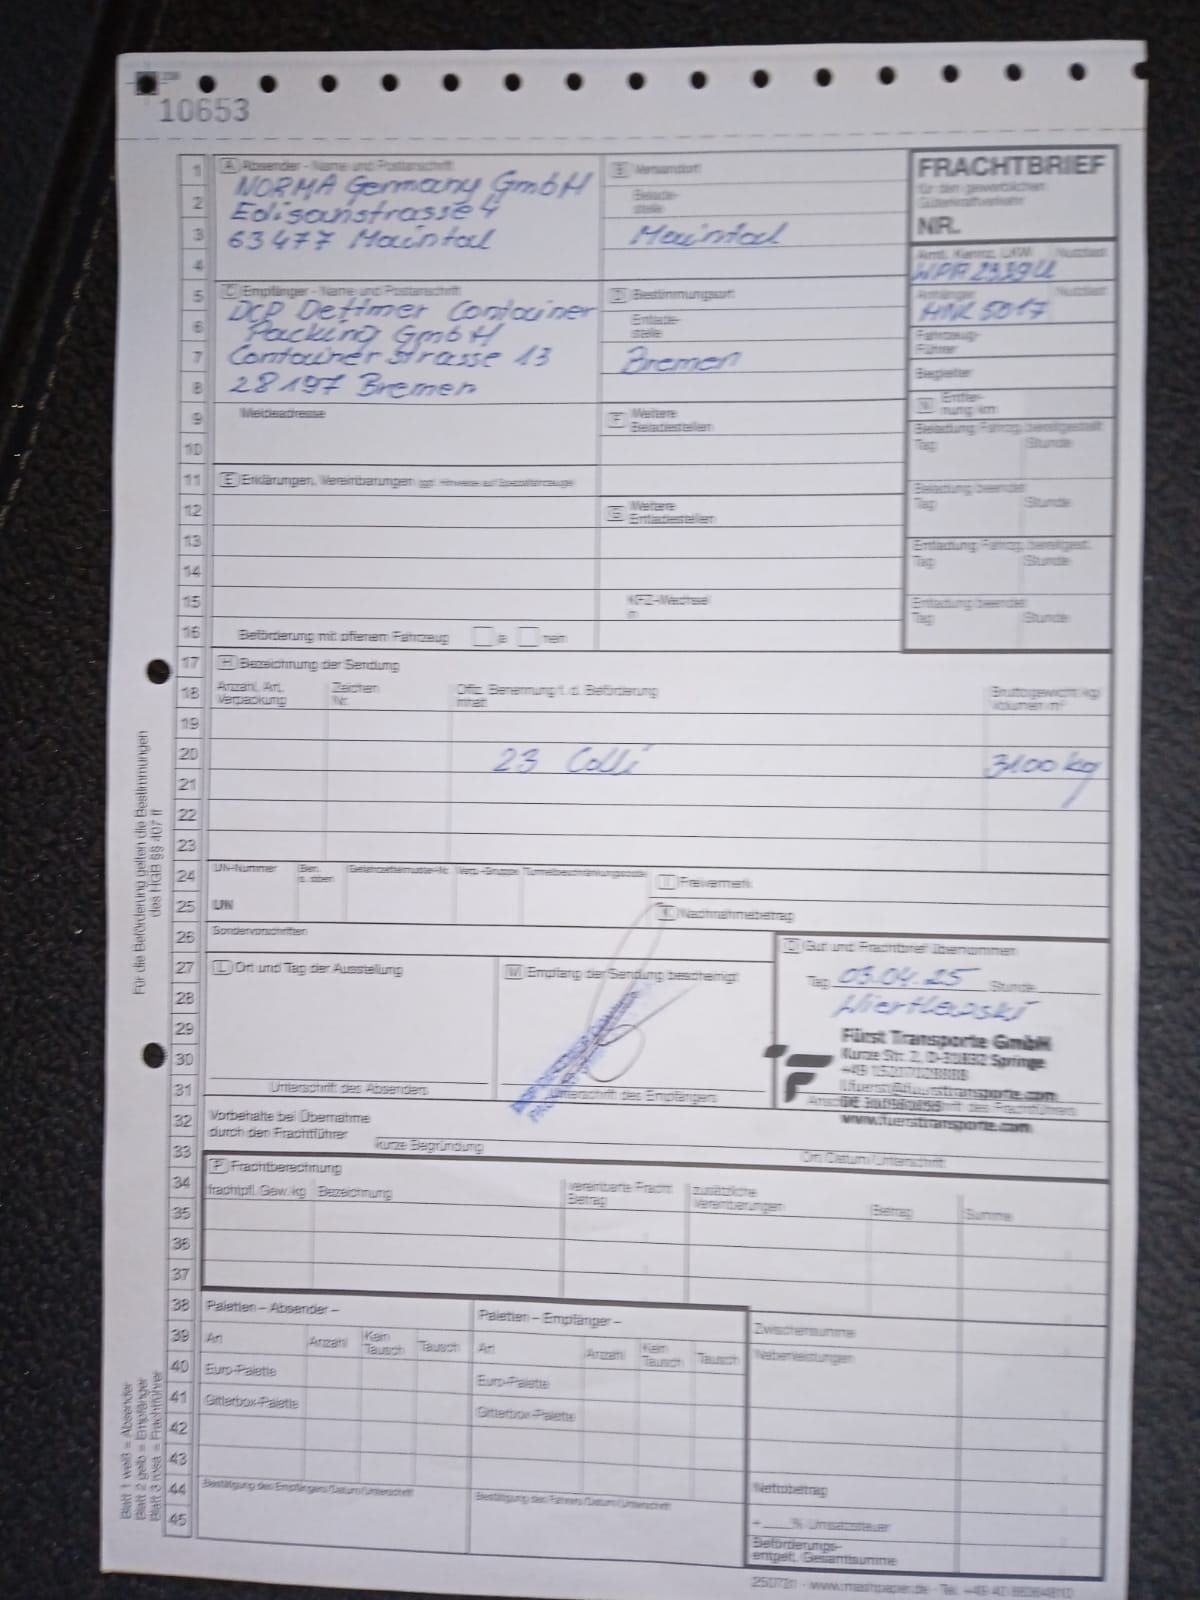 10653
A Absender - Name und Postanschrift
NORMA Germany GmbH
Edisonstrasse 4
63477 Maintal
B Versandort
Belade-
stelle
Maintal
FRACHTBRIEF
für den gewerblichen
Güterkraftverkehr
NR.
Amtl. Kennz. LKW Nutzlast
WPR 2339U
Anhänger Nutzlast
HNK 5017
Fahrzeug-
Führer
Begleiter
C Empfänger - Name und Postanschrift
DCP Dettmer Container
Packing GmbH
Containerstrasse 13
28197 Bremen
D Bestimmungsort
Entlade-
stelle
Bremen
Meldeadresse
F Weitere
Beladestellen
N Entfer-
nung km
Beladung Fahrzg. bereitgestellt
Tag Stunde
Beladung beendet
Tag Stunde
Entladung Fahrzg. bereitgest.
Tag Stunde
Entladung beendet
Tag Stunde
E Erklärungen, Vereinbarungen ggf. Hinweise auf Spezialfahrzeuge
G Weitere
Entladestellen
KFZ-Wechsel
in
Beförderung mit offenem Fahrzeug ja nein
H Bezeichnung der Sendung
Anzahl, Art,
Verpackung
Zeichen
Nr.
Offiz. Benennung f. d. Beförderung
Inhalt
Bruttogewicht kg/
Volumen m³
23 Colli 3100 kg
UN-Nummer
Ben.
s. oben
Gefahrzettelmuster-Nr. Verp.-Gruppe Tunnelbeschränkungscode
UN
I Freivermerk
K Nachnahmebetrag
Sondervorschriften
L Ort und Tag der Ausstellung
M Empfang der Sendung bescheinigt
O Gut und Frachtbrief übernommen
Tag 03.04.25 Stunde
Wiertlewski
Fürst Transporte GmbH
Kurze Str. 2, D-31832 Springe
www.fuersttransporte.com
Unterschrift des Absenders
Unterschrift des Empfängers
Vorbehalte bei Übernahme
durch den Frachtführer
kurze Begründung
Ort/Datum/Unterschrift
P Frachtberechnung
frachtpfl. Gew. kg Bezeichnung
vereinbarte Fracht
Betrag
zusätzliche
Vereinbarungen
Betrag Summe
Paletten – Absender –
Art Anzahl Kein Tausch Tausch
Euro-Palette
Gitterbox-Palette
Bestätigung des Empfängers/Datum/Unterschrift
Paletten – Empfänger –
Art Anzahl Kein Tausch Tausch
Euro-Palette
Gitterbox-Palette
Bestätigung des Fahrers/Datum/Unterschrift
Zwischensumme
Nebenleistungen
Nettobetrag
+ % Umsatzsteuer
Beförderungs-
entgelt, Gesamtsumme
Für die Beförderung gelten die Bestimmungen
des HGB §§ 407 ff
Blatt 1 weiß = Absender
Blatt 2 gelb = Empfänger
Blatt 3 rosa = Frachtführer
1
2
3
4
5
6
7
8
9
10
11
12
13
14
15
16
17
18
19
20
21
22
23
24
25
26
27
28
29
30
31
32
33
34
35
36
37
38
39
40
41
42
43
44
45